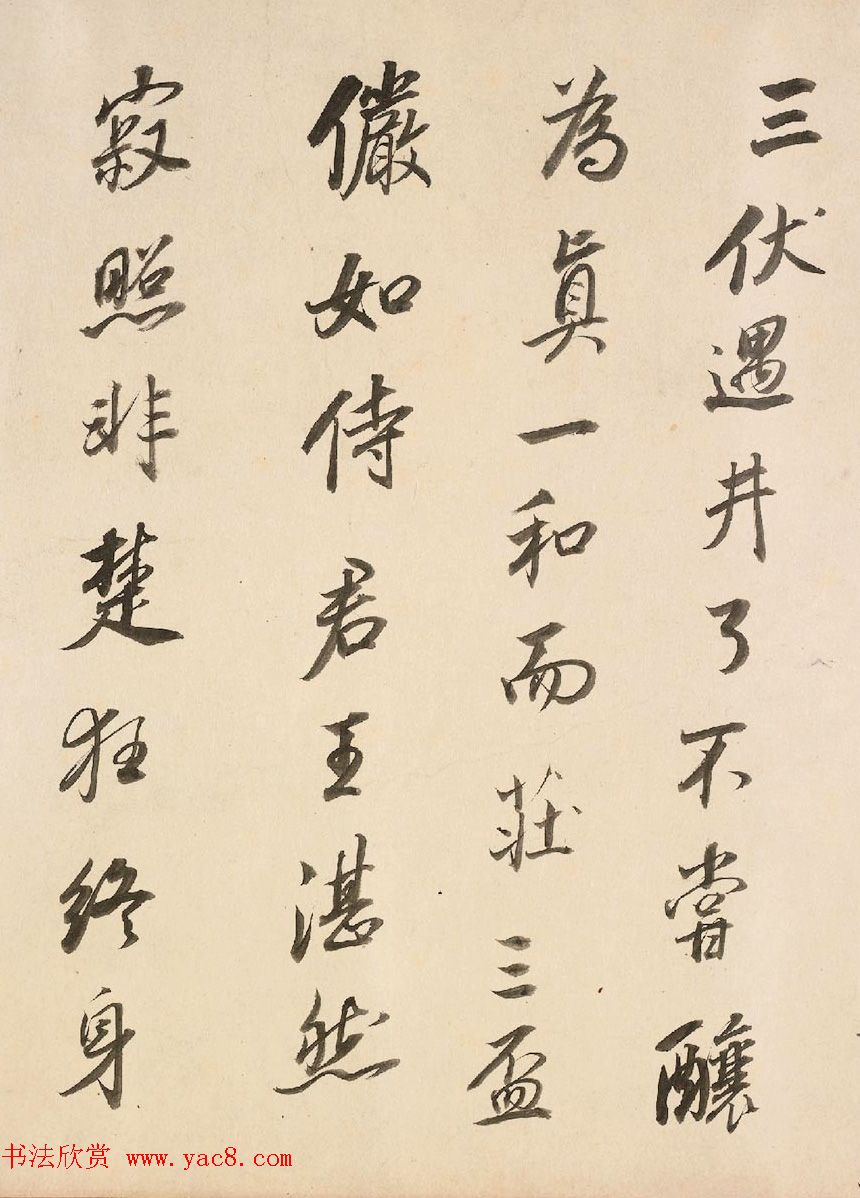 三伏遇井了不嘗釀
為真一和而莊三盃
儼如侍君王湛然
寂照非楚狂終身
书法欣赏 www.yac8.com